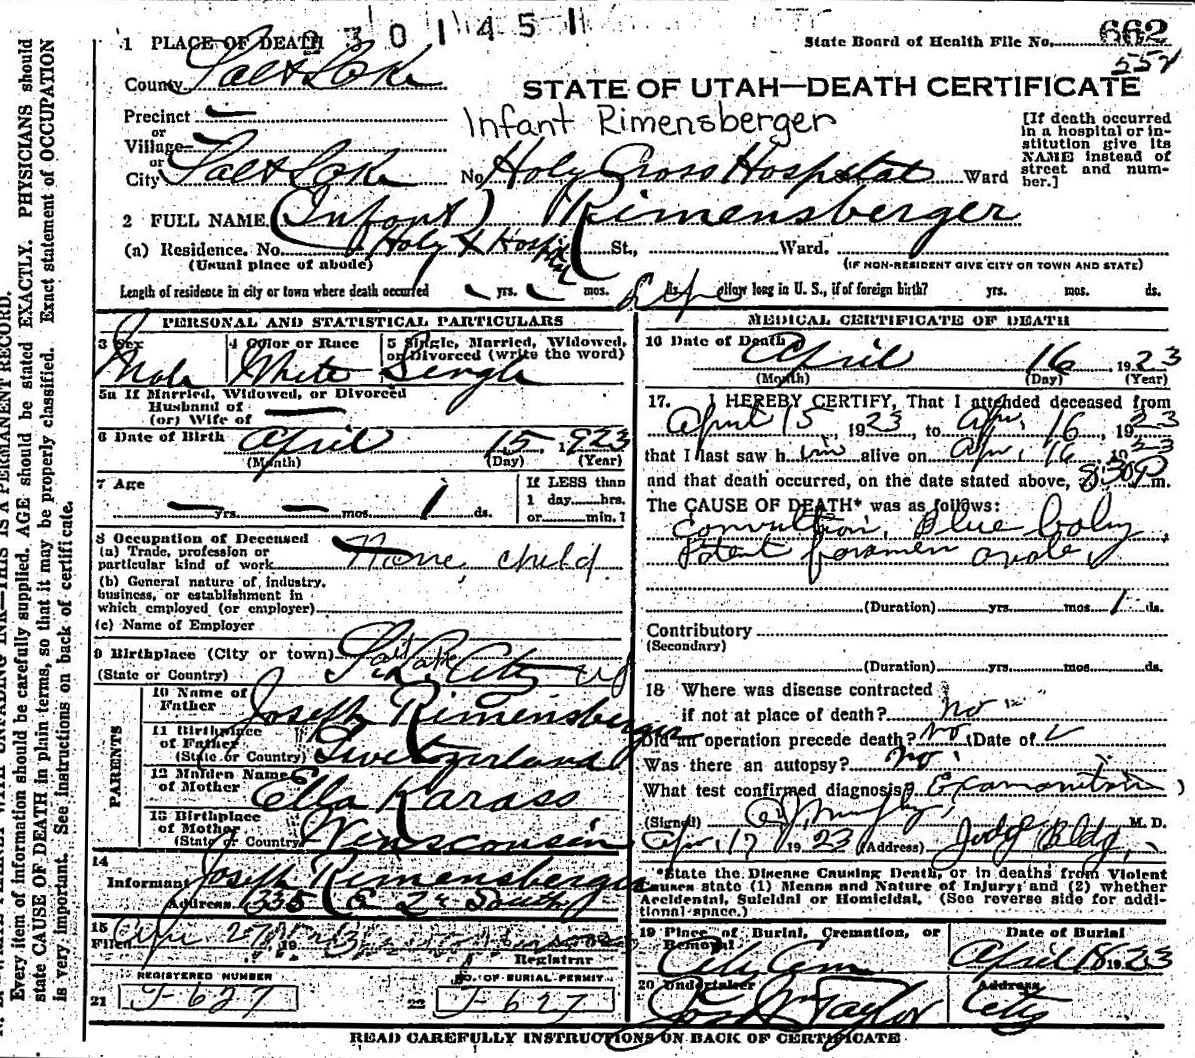 2 3 0 1 4 5 1
1 PLACE OF DEATH
State Board of Health File No. 662
557
County Salt Lake
STATE OF UTAH—DEATH CERTIFICATE
Precinct —
or
Village
or
City Salt Lake
Infant Rimensberger
No. Holy Cross Hospital Ward
[If death occurred
in a hospital or in-
stitution give its
NAME instead of
street and num-
ber.]
2 FULL NAME (Infant) Rimensberger
(a) Residence. No. Holy X Hospital St., Ward.
(Usual place of abode)
(IF NON-RESIDENT GIVE CITY OR TOWN AND STATE)
Length of residence in city or town where death occurred — yrs. — mos. Life ds. How long in U. S., if of foreign birth? yrs. mos. ds.
PERSONAL AND STATISTICAL PARTICULARS
3 Sex 4 Color or Race 5 Single, Married, Widowed,
or Divorced (write the word)
Male White Single
5a If Married, Widowed, or Divorced
Husband of
(or) Wife of —
6 Date of Birth April 15, 1923
(Month) (Day) (Year)
7 Age
— yrs. — mos. 1 ds.
If LESS than
1 day......hrs.
or......min.?
8 Occupation of Deceased
(a) Trade, profession or
particular kind of work None, child
(b) General nature of industry,
business, or establishment in
which employed (or employer)
(c) Name of Employer
9 Birthplace (City or town) Salt Lake City
(State or Country)
PARENTS
10 Name of
Father Joseph Rimensberger
11 Birthplace
of Father
(State or Country) Switzerland
12 Maiden Name
of Mother Ella Karass
13 Birthplace
of Mother
(State or Country) Winsconsin
14
Informant Joseph Rimensberger
Address 1335 E 2d South
15
Filed Apr 27 1923
Registrar
REGISTERED NUMBER NO. OF BURIAL PERMIT
21 J-627 22 J-627
MEDICAL CERTIFICATE OF DEATH
16 Date of Death April 16, 1923
(Month) (Day) (Year)
17. I HEREBY CERTIFY, That I attended deceased from
April 15, 1923, to Apr. 16, 1923
that I last saw him alive on Apr. 16 1923
and that death occurred, on the date stated above, 8:30 P. m.
The CAUSE OF DEATH* was as follows:
Convultion, Blue baby,
Patent foramen ovale,
(Duration) yrs. mos. 1 ds.
Contributory
(Secondary)
(Duration) yrs. mos. ds.
18 Where was disease contracted
if not at place of death? no
Did an operation precede death? no (Date of
Was there an autopsy? no
What test confirmed diagnosis? Examination,
(Signed) Murphy, M. D.
Apr. 17 1923 (Address) Judge Bldg,
*State the Disease Causing Death, or in deaths from Violent
Causes state (1) Means and Nature of Injury; and (2) whether
Accidental, Suicidal or Homicidal. (See reverse side for addi-
tional space.)
19 Place of Burial, Cremation, or
Removal
Date of Burial
City Cem April 18 1923
20 Undertaker Address
Jos Wm Taylor City
READ CAREFULLY INSTRUCTIONS ON BACK OF CERTIFICATE
THIS IS A PERMANENT RECORD.
Every item of information should be carefully supplied. AGE should be stated EXACTLY. PHYSICIANS should
state CAUSE OF DEATH in plain terms, so that it may be properly classified. Exact statement of OCCUPATION
is very important. See instructions on back of certificate.